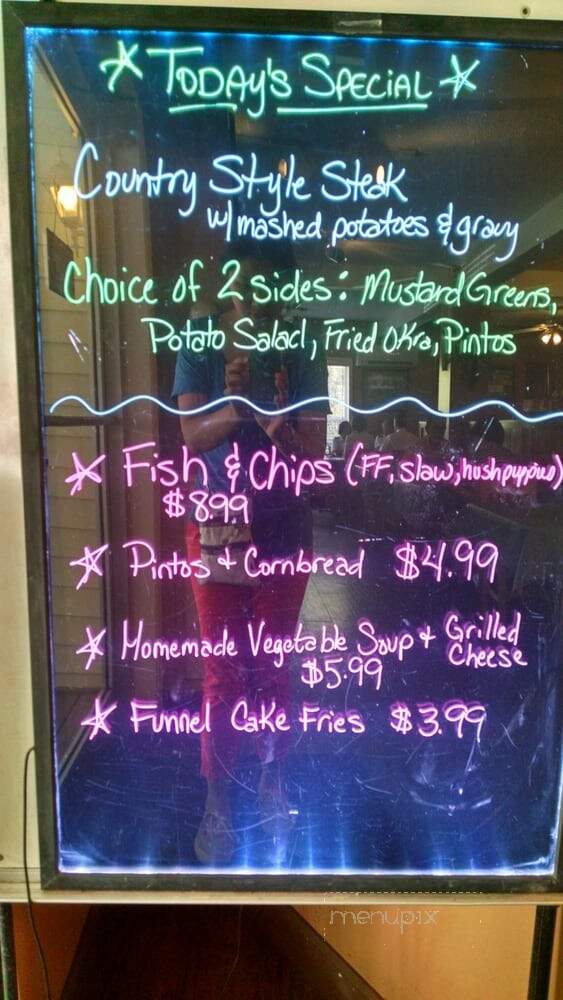 Today's Special
Country Style Steak
w/ mashed potatoes & gravy
Choice of 2 sides: Mustard Greens,
Potato Salad, Fried Okra, Pintos
Fish & Chips (FF, slaw, hushpuppies)
$8.99
Pintos + Cornbread $4.99
Homemade Vegetable Soup + Grilled
Cheese
$5.99
Funnel Cake Fries $3.99
menupix